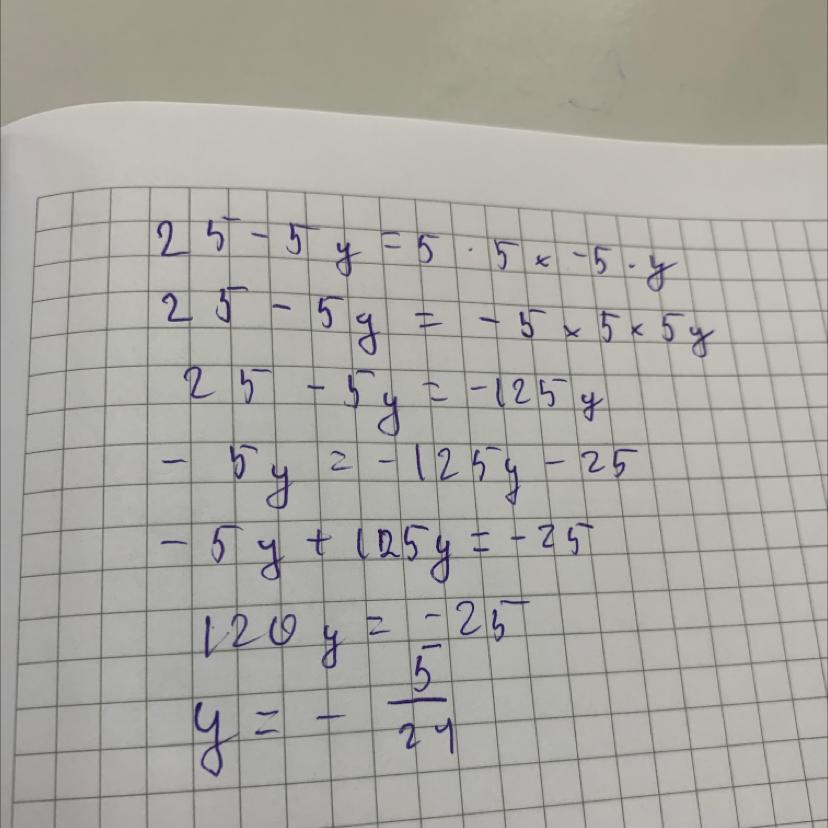 25 - 5y = 5 · 5 × -5 · y
25 - 5y = - 5 × 5 × 5y
25 - 5y = -125y
- 5y = -125y - 25
- 5y + 125y = -25
120y = -25
y = - 5/24